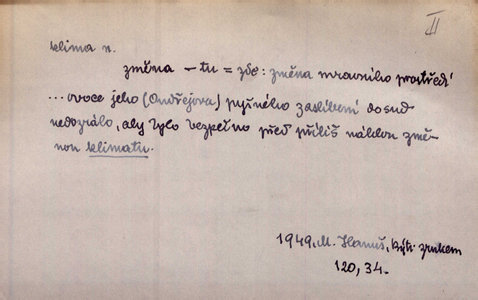 II
klima n.
změna – tu = zde: změna mravního prostředí
... ovoce jeho (Ondřejova) pyšného zaslíbení dosud
nedozrálo, aby bylo bezpečno před příliš náhlou změ-
nou klimatu.
1949, M. Hanuš, Býti zrnkem
120, 34.